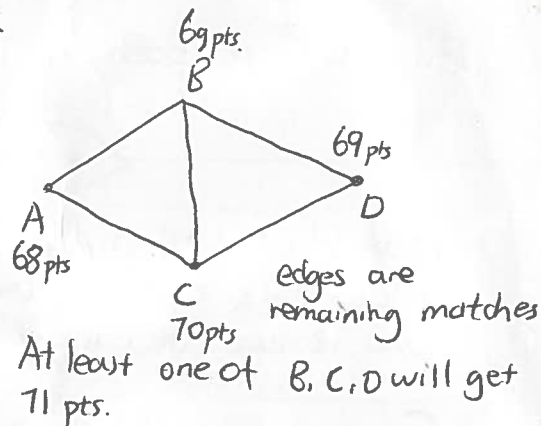 69pts.
B
69 pts
D
A
68 pts
C
70pts
edges are
remaining matches
At least one of B, C, D will get
71 pts.